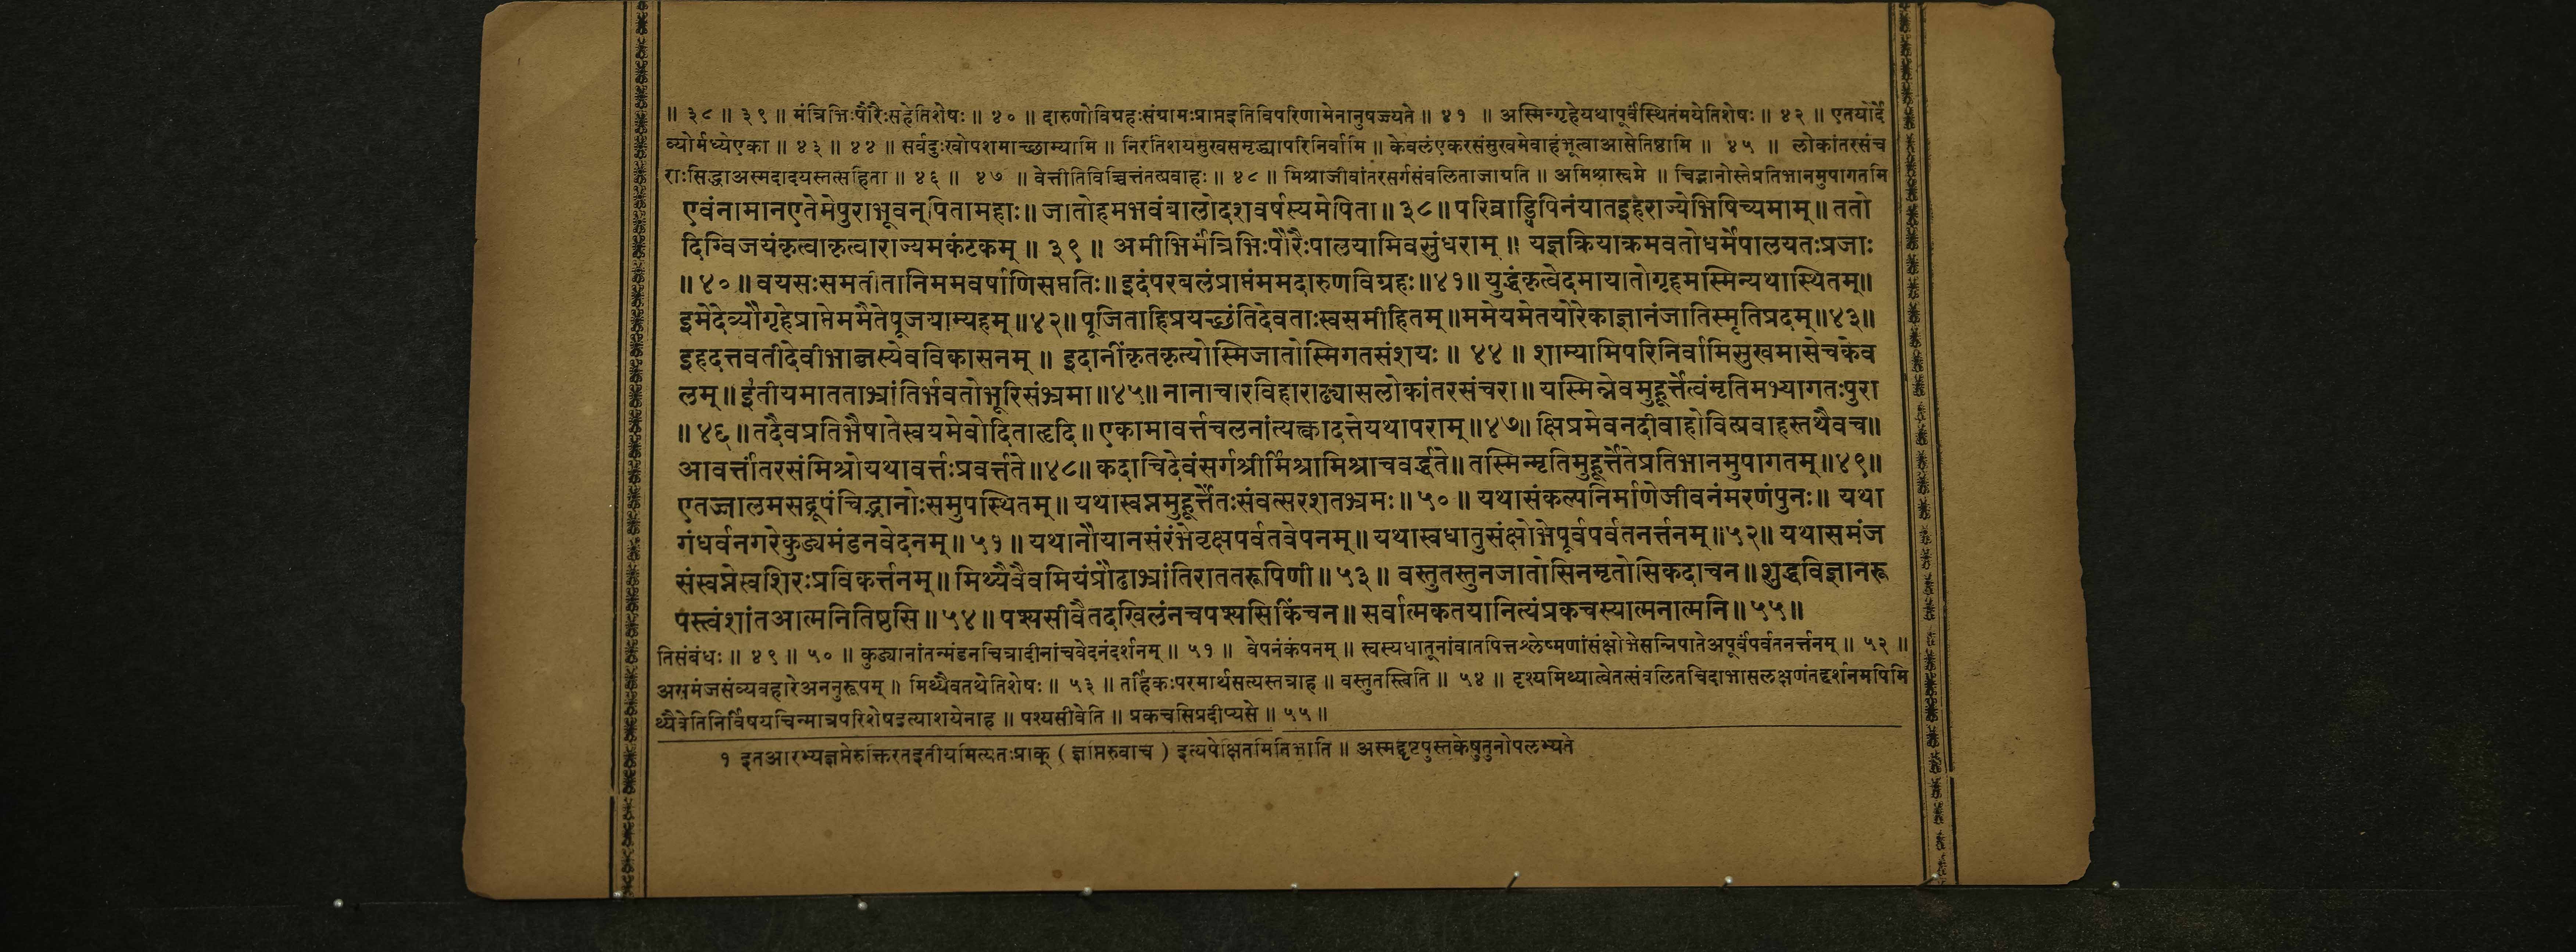 ॥ ३८ ॥ ३९ ॥ मंत्रिभिःपौरैःसहेतिशेषः ॥ ४० ॥ दारुणोविग्रहःसंग्रामःप्राप्तइतिविपरिणामेनानुषज्ज्यते ॥ ४१ ॥ अस्मिन्गृहेयथापूर्वंस्थितंमयेतिशेषः ॥ ४२ ॥ एतयोर्दे
व्योर्मध्येएका ॥ ४३ ॥ ४४ ॥ सर्वदुःखोपशमाच्छाम्यामि ॥ निरतिशयसुखसमृद्ध्यापरिनिर्वामि ॥ केवलंएकरसंसुखमेवाहंभूत्वाआसेतिष्ठामि ॥ ४५ ॥ लोकांतरसंच
राःसिद्धाअस्मदादयस्तत्सहिता ॥ ४६ ॥ ४७ ॥ वेत्तीतिविच्चित्तंतत्प्रवाहः ॥ ४८ ॥ मिश्राजीवांतरसर्गसंवलिताजाग्रति ॥ अमिश्रास्वप्ने ॥ चिद्भानोस्तेप्रतिभानमुपागतमि
एवंनामानएतेमेपुराभूवन्पितामहाः॥ जातोहमभवंबालोदशवर्षस्यमेपिता॥ ३८॥ परिव्राड्विपिनंयातइहराज्येभिषिच्यमाम्॥ ततो
दिग्विजयंकृत्वाकृत्वाराज्यमकंटकम् ॥ ३९ ॥ अमीभिर्मंत्रिभिःपौरैःपालयामिवसुंधराम् ॥ यज्ञक्रियाक्रमवतोधर्मेपालयतःप्रजाः
॥ ४० ॥ वयसःसमतीतानिममवर्षाणिसप्ततिः॥ इदंपरबलंप्राप्तंममदारुणविग्रहः॥४१॥ युद्धंकृत्वेदमायातोगृहमस्मिन्यथास्थितम्॥
इमेदेव्यौगृहेप्राप्तेममैतेपूजयाम्यहम् ॥४२॥ पूजिताहिप्रयच्छंतिदेवताःस्वसमीहितम्॥ममेयमेतयोरेकाज्ञानंजातिस्मृतिप्रदम्॥४३॥
इहदत्तवतीदेवीभाब्जस्येवविकासनम् ॥ इदानींकृतकृत्योस्मिजातोस्मिगतसंशयः ॥ ४४ ॥ शाम्यामिपरिनिर्वामिसुखमासेचकेव
लम्॥ इंतीयमातताभ्रांतिर्भवतोभूरिसंभ्रमा॥४५॥ नानाचारविहाराढ्यासलोकांतरसंचरा॥ यस्मिन्नेवमुहूर्त्तेत्वंमृतिमभ्यागतःपुरा
॥ ४६ ॥ तदैवप्रतिभैषातेस्वयमेवोदिताहृदि॥ एकामावर्त्तचलनांत्यक्त्वादत्तेयथापराम्॥४७॥ क्षिप्रमेवनदीवाहोवित्प्रवाहस्तथैवच॥
आवर्त्तांतरसंमिश्रोयथावर्त्तःप्रवर्त्तते॥४८॥ कदाचिदेवंसर्गश्रीर्मिश्रामिश्राचवर्द्धते॥ तस्मिन्मृतिमुहूर्त्तेतेप्रतिभानमुपागतम्॥४९॥
एतज्जालमसद्रूपंचिद्भानोःसमुपस्थितम्॥ यथास्वप्नमुहूर्त्तेतःसंवत्सरशतभ्रमः॥ ५० ॥ यथासंकल्पनिर्माणेजीवनंमरणंपुनः॥ यथा
गंधर्वनगरेकुड्यमंडनवेदनम्॥ ५१ ॥ यथानौयानसंरंभेवृक्षपर्वतवेपनम्॥ यथास्वधातुसंक्षोभेपूर्वपर्वतनर्त्तनम्॥५२॥ यथासमंज
संस्वप्नेस्वशिरःप्रविकर्त्तनम्॥ मिथ्यैवैवमियंप्रौढाभ्रांतिराततरूपिणी॥ ५३ ॥ वस्तुतस्तुनजातोसिनमृतोसिकदाचन॥ शुद्धविज्ञानरू
पस्त्वंशांतआत्मनितिष्ठसि॥ ५४॥ पश्यसीवैतदखिलंनचपश्यसिकिंचन॥ सर्वात्मकतयानित्यंप्रकचस्यात्मनात्मनि॥ ५५॥
तिसंबंधः ॥ ४९ ॥ ५० ॥ कुड्यानांतन्मंडनचित्रादीनांचवेदनंदर्शनम् ॥ ५१ ॥ वेपनंकंपनम् ॥ स्वस्यधातूनांवातपित्तश्लेष्मणांसंक्षोभेसन्निपातेअपूर्वंपर्वतनर्त्तनम् ॥ ५२ ॥
असमंजसंव्यवहारेअननुरूपम् ॥ मिथ्यैवतथेतिशेषः ॥ ५३ ॥ तर्हिकःपरमार्थसत्यस्तत्राह ॥ वस्तुतस्त्विति ॥ ५४ ॥ दृश्यमिथ्यात्वेतत्संवलितचिदाभासलक्षणंतद्दर्शनमपिमि
थ्यैवेतिनिर्विषयचिन्मात्रपरिशेषइत्याशयेनाह ॥ पश्यसीवेति ॥ प्रकचसिप्रदीप्यसे ॥ ५५ ॥
१ इतआरभ्यज्ञप्तेरुक्तिरतइतीयमित्यतःप्राक् ( ज्ञप्तिरुवाच ) इत्यपेक्षितमितिभाति ॥ अस्मद्दृष्टपुस्तकेषुतुनोपलभ्यते